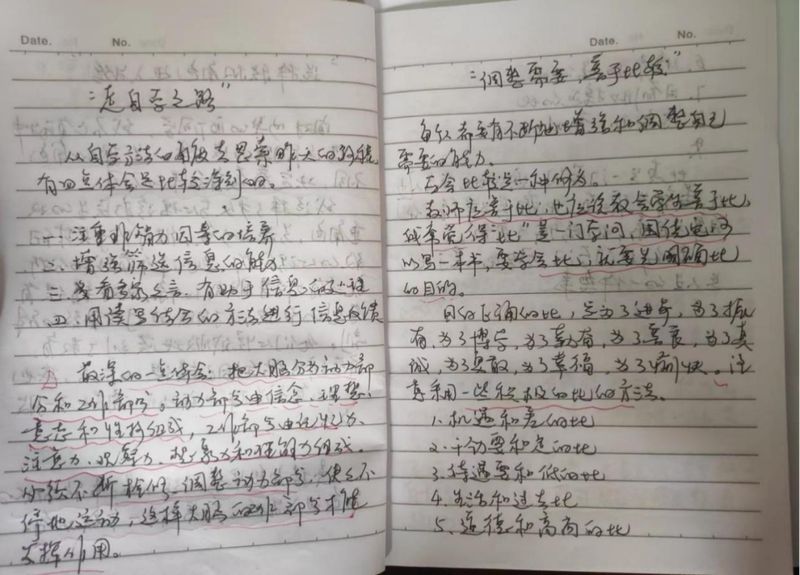 Date.
No.
"走自学之路"
从自学方法的角度去思索昨天的路程,
有四点体会是比较深刻的。
一、注重非智力因素的培养
二、增强筛选信息的能力
三、发看多家之言,有助于信息的处理
四、用读写结合的方法进行信息反馈
最深的是体会:把大脑分为动力部
分和工作部分。动力部分由信念、理想、
意志和性格组成,工作部分由记忆力、
注意力、观察力、想象力和理解力组成。
必须不断检修、调整动力部分,使之不
停地运动,这样大脑的工作部分才能
发挥作用。
Date.
No.
"调整需要,善于比较"
每人都要有不断地增强和调整自己
需要的能力。
去会比较是一种能力。
教师应善于比,也应该教会学生善于比,
我常觉得"比"是一门学问,围绕它可
以写一本书,要学会比,就要先明确比
的目的。
目的正确的比,是为了进奋,为了振
有,为了博学,为了勤奋,为了善良,为了真
诚,为了勇敢,为了幸福,为了愉快。注
意采用一些积极的比的方法。
1、机遇和差的比
2、干劲要和足的比
3、待遇要和低的比
4、生活和过去比
5、道德和高尚的比